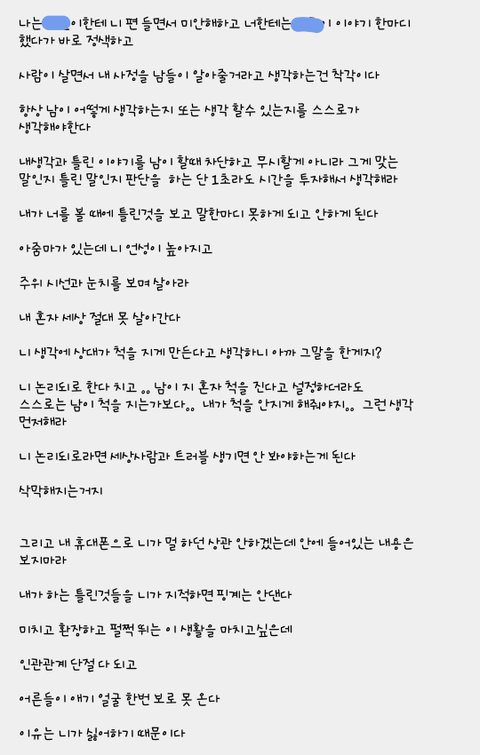 나는 이한테 니 편 들면서 미안해하고 너한테는 이 이야기 한마디
했다가 바로 정색하고
사람이 살면서 내 사정을 남들이 알아줄거라고 생각하는건 착각이다
항상 남이 어떻게 생각하는지 또는 생각 할수 있는지를 스스로가
생각해야한다
내생각과 틀린 이야기를 남이 할때 차단하고 무시할게 아니라 그게 맞는
말인지 틀린 말인지 판단을 하는 단 1초라도 시간을 투자해서 생각해라
내가 너를 볼 때에 틀린것을 보고 말한마디 못하게 되고 안하게 된다
아줌마가 있는데 니 언성이 높아지고
주위 시선과 눈치를 보며 살아라
내 혼자 세상 절대 못 살아간다
니 생각에 상대가 척을 지게 만든다고 생각하니 아까 그말을 한게지?
니 논리되로 한다 치고 ,, 남이 지 혼자 척을 진다고 설정하더라도
스스로는 남이 척을 지는가보다,, 내가 척을 안지게 해줘야지,, 그런 생각
먼저해라
니 논리되로라면 세상사람과 트러블 생기면 안 봐야하는게 된다
삭막해지는거지
그리고 내 휴대폰으로 니가 멀 하던 상관 안하겠는데 안에 들어있는 내용은
보지마라
내가 하는 틀린것들을 니가 지적하면 핑계는 안댄다
미치고 환장하고 펄쩍 뛰는 이 생활을 마치고싶은데
인관관계 단절 다 되고
어른들이 얘기 얼굴 한번 보로 못 온다
이유는 니가 싫어하기 때문이다